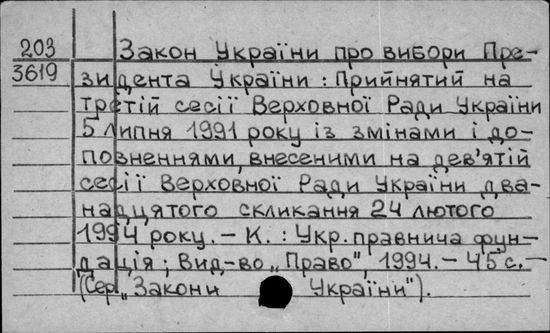 203 Закон України про вибори Пре-
3619 зидента України : Прийнятий на
третій сесії Верховної Ради України
5 липня 1991 року із змінами і до-
повненнями, внесеними на дев'ятій
сесії Верховної Ради України два-
надцятого скликання 24 лютого
1994 року. – К. : Укр. правнича фун-
дація ; Вид-во „Право", 1994. – 45 с. –
(Сер. „Закони України").